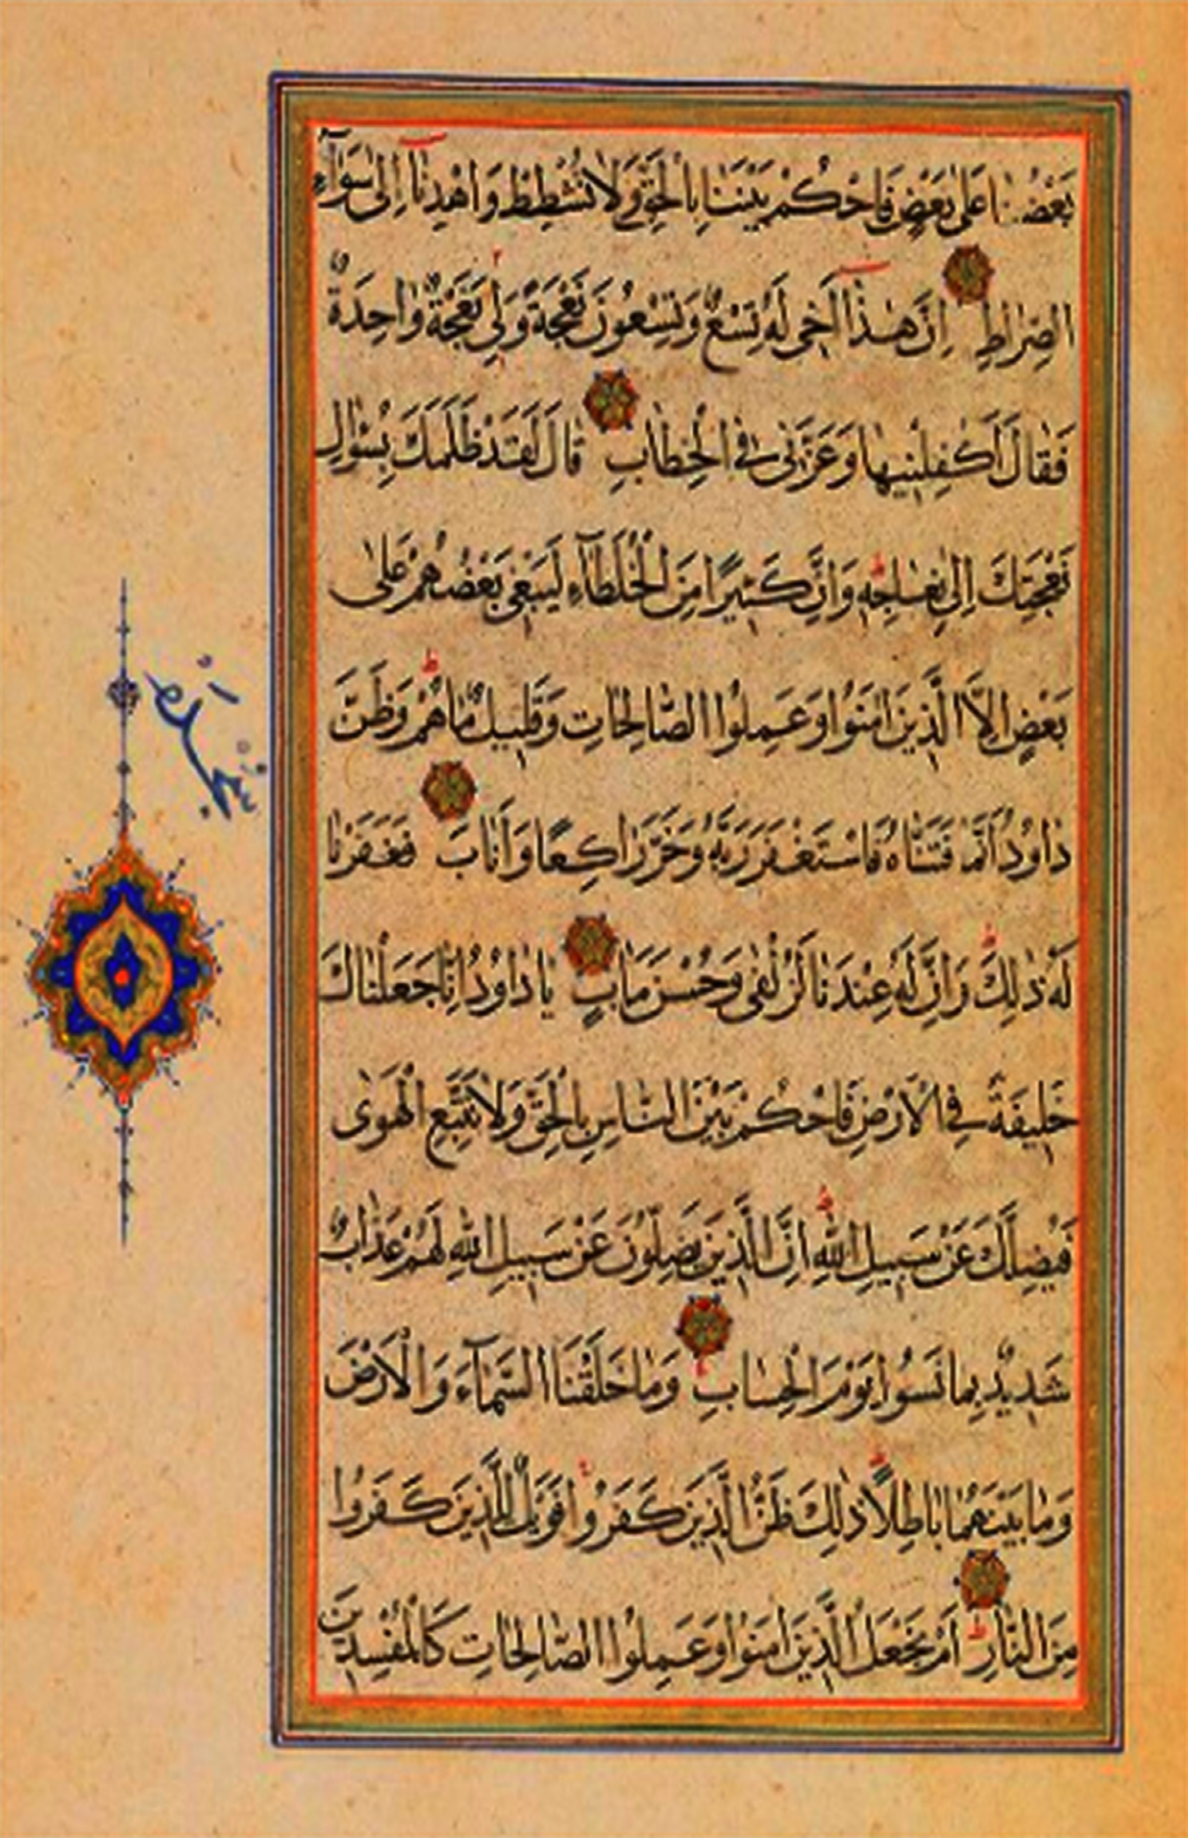 بَعْضُنَا عَلٰى بَعْضٍ فَاحْكُمْ بَيْنَنَا بِالْحَقِّ وَلَا تُشْطِطْ وَاهْدِنَآ اِلٰى سَوَآءِ
الصِّرَاطِ اِنَّ هٰذَآ اَخٖى لَهُ تِسْعٌ وَتِسْعُونَ نَعْجَةً وَلِىَ نَعْجَةٌ وَاحِدَةٌ
فَقَالَ اَكْفِلْنٖيهَا وَعَزَّنٖى فِى الْخِطَابِ قَالَ لَقَدْ ظَلَمَكَ بِسُؤَالِ
نَعْجَتِكَ اِلٰى نِعَاجِهٖ وَاِنَّ كَثٖيرًا مِنَ الْخُلَطَآءِ لَيَبْغٖى بَعْضُهُمْ عَلٰى
بَعْضٍ اِلَّا الَّذٖينَ اٰمَنُوا وَعَمِلُوا الصَّالِحَاتِ وَقَلٖيلٌ مَاهُمْ وَظَنَّ
دَاوُدُ اَنَّمَا فَتَنَّاهُ فَاسْتَغْفَرَ رَبَّهُ وَخَرَّ رَاكِعًا وَاَنَابَ فَغَفَرْنَا
لَهُ ذٰلِكَ وَاِنَّ لَهُ عِنْدَنَا لَزُلْفٰى وَحُسْنَ مَاٰبٍ يَا دَاوُدُ اِنَّا جَعَلْنَاكَ
خَلٖيفَةً فِى الْاَرْضِ فَاحْكُمْ بَيْنَ النَّاسِ بِالْحَقِّ وَلَا تَتَّبِعِ الْهَوٰى
فَيُضِلَّكَ عَنْ سَبٖيلِ اللّٰهِ اِنَّ الَّذٖينَ يَضِلُّونَ عَنْ سَبٖيلِ اللّٰهِ لَهُمْ عَذَابٌ
شَدٖيدٌ بِمَا نَسُوا يَوْمَ الْحِسَابِ وَمَا خَلَقْنَا السَّمَآءَ وَالْاَرْضَ
وَمَا بَيْنَهُمَا بَاطِلًا ذٰلِكَ ظَنُّ الَّذٖينَ كَفَرُوا فَوَيْلٌ لِلَّذٖينَ كَفَرُوا
مِنَ النَّارِ اَمْ نَجْعَلُ الَّذٖينَ اٰمَنُوا وَعَمِلُوا الصَّالِحَاتِ كَالْمُفْسِدٖينَ
سَجْدَه